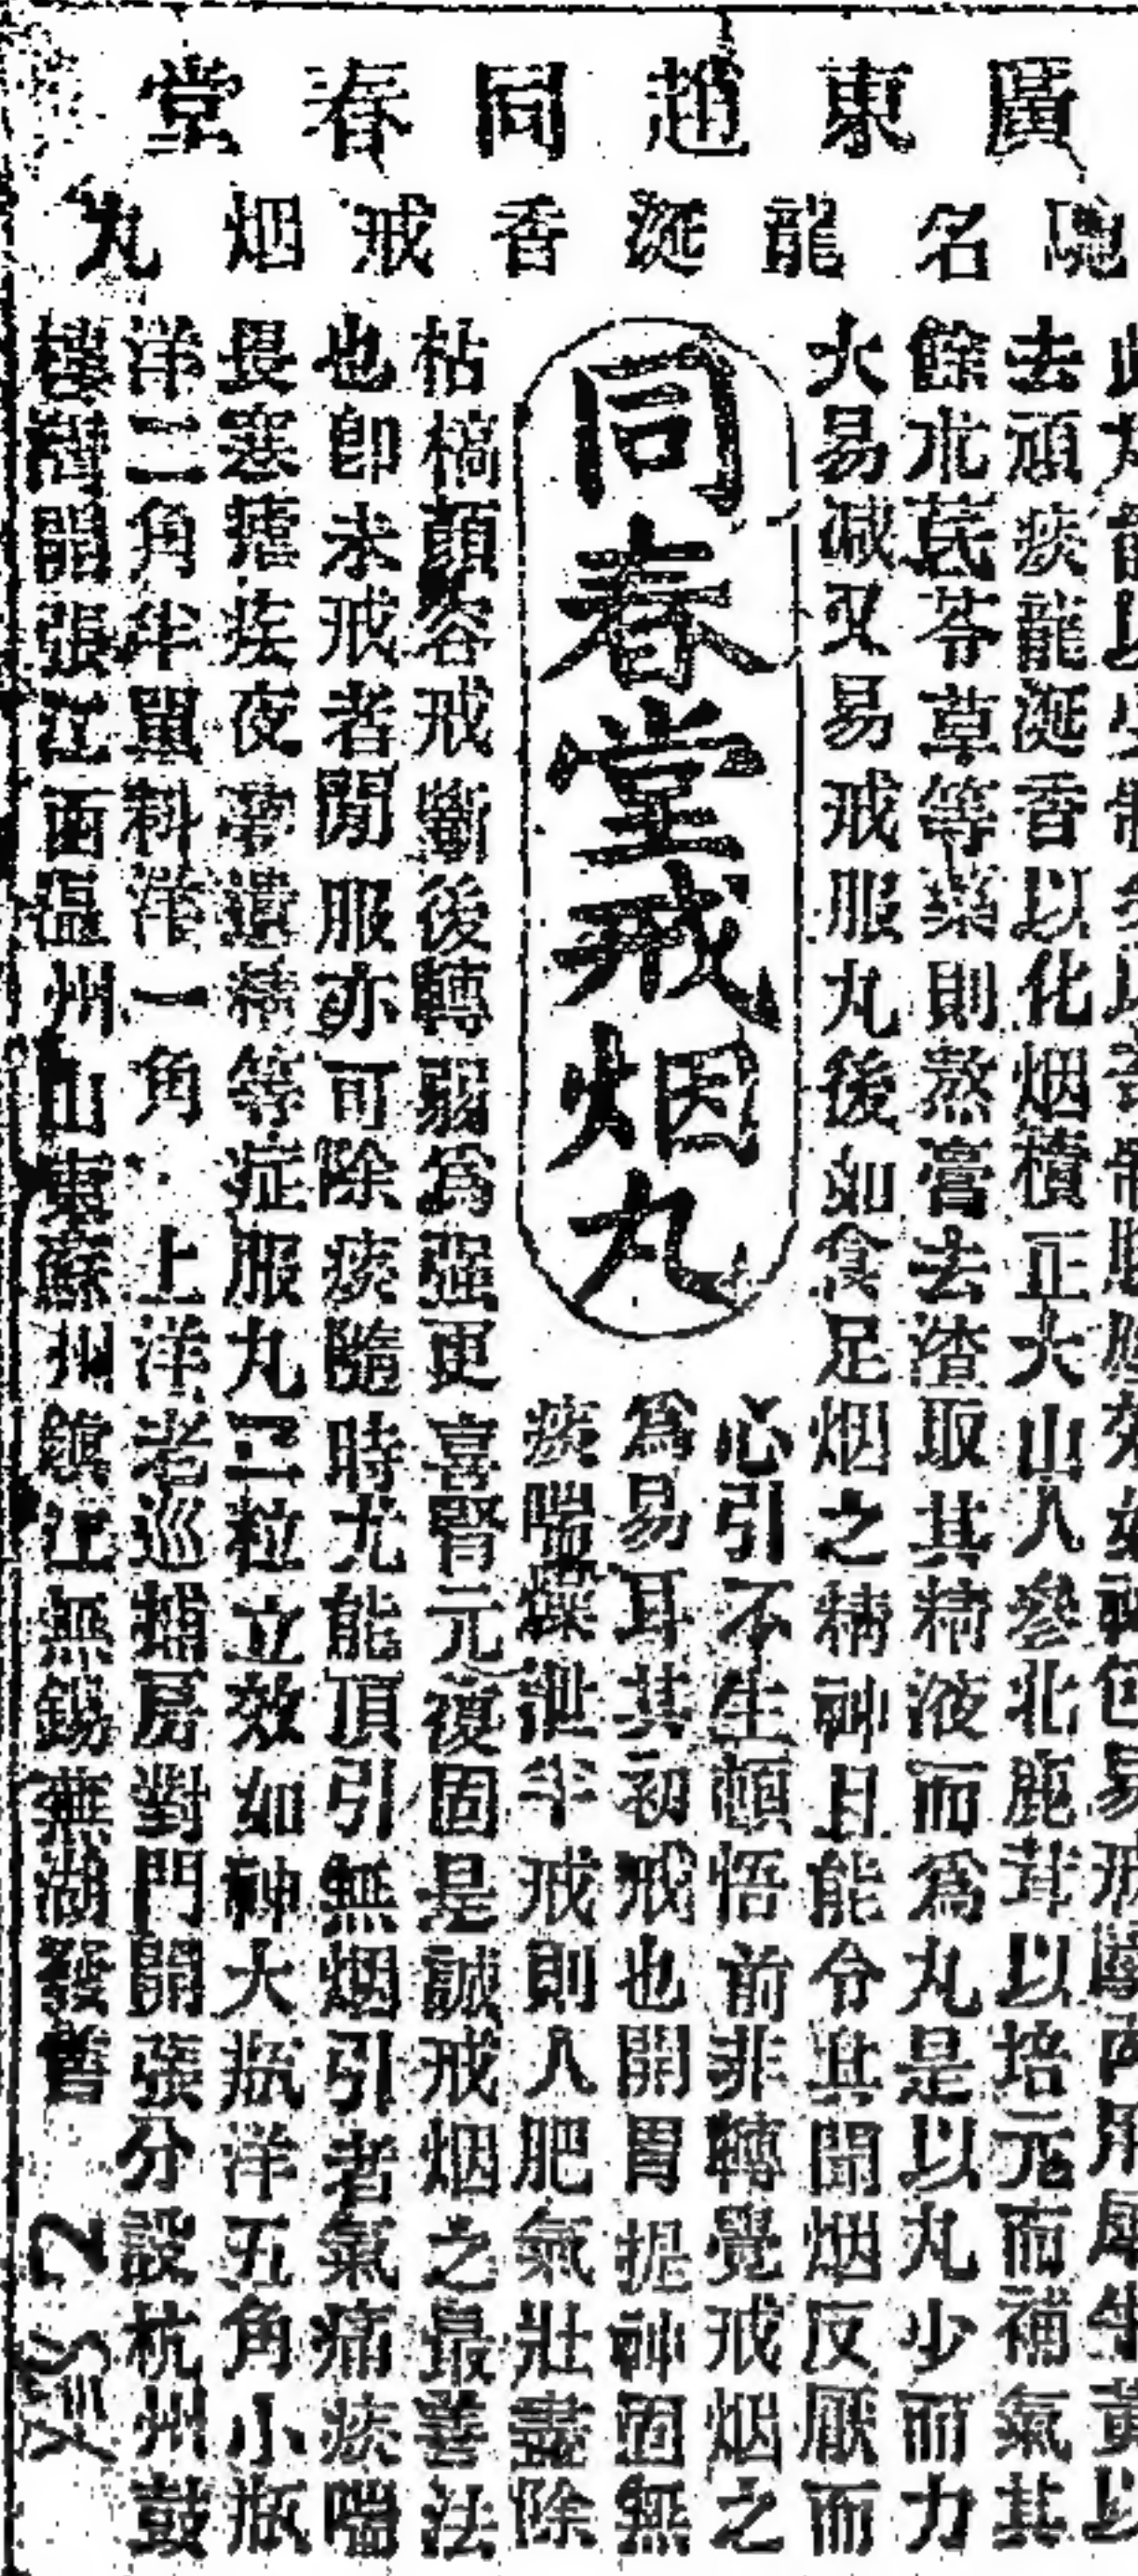 廣東趙同春堂
馳名龍涎香戒烟丸
效如神包易戒斷內用犀牛黃以
去頑痰龍涎香以化烟積正大山人參北鹿茸以培元而補氣其
餘朮芪苓草等藥則熬膏去渣取其精液而爲丸是以丸少而力
大易减又易戒服丸後如食足烟之精神且能令其聞烟反厭而
同春堂戒烟丸
心引不生頓悟前非轉覺戒烟之
爲易耳其初戒也開胃提神固無
痰喘燥泄半戒則人肥氣壯盡除
枯槁顏容戒斷後轉弱爲强更喜腎元復固是誠戒烟之最善法
也卽未戒者閒服亦可除痰隨時尤能頂引無烟引者氣痛痰喘
畏寒瘧疾夜夢遺精等症服丸二粒立效如神大瓶洋五角小瓶
洋二角半單料洋一角 上洋老巡捕房對門開張分設杭州鼓
樓灣開張江西温州山東蘇州鎮江無錫蕪湖發售